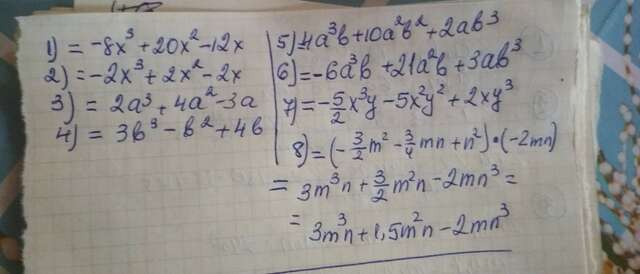 1) = -8x³ + 20x² - 12x
2) = -2x³ + 2x² - 2x
3) = 2a³ + 4a² - 3a
4) = 3b³ - b² + 4b
5) 4a³b + 10a²b² + 2ab³
6) = -6a³b + 21a²b + 3ab³
7) = -5/2x³y - 5x²y² + 2xy³
8) = (-3/2m² - 3/4mn + n²) · (-2mn)
= 3m³n + 3/2m²n - 2mn³ =
= 3m³n + 1,5m²n - 2mn³